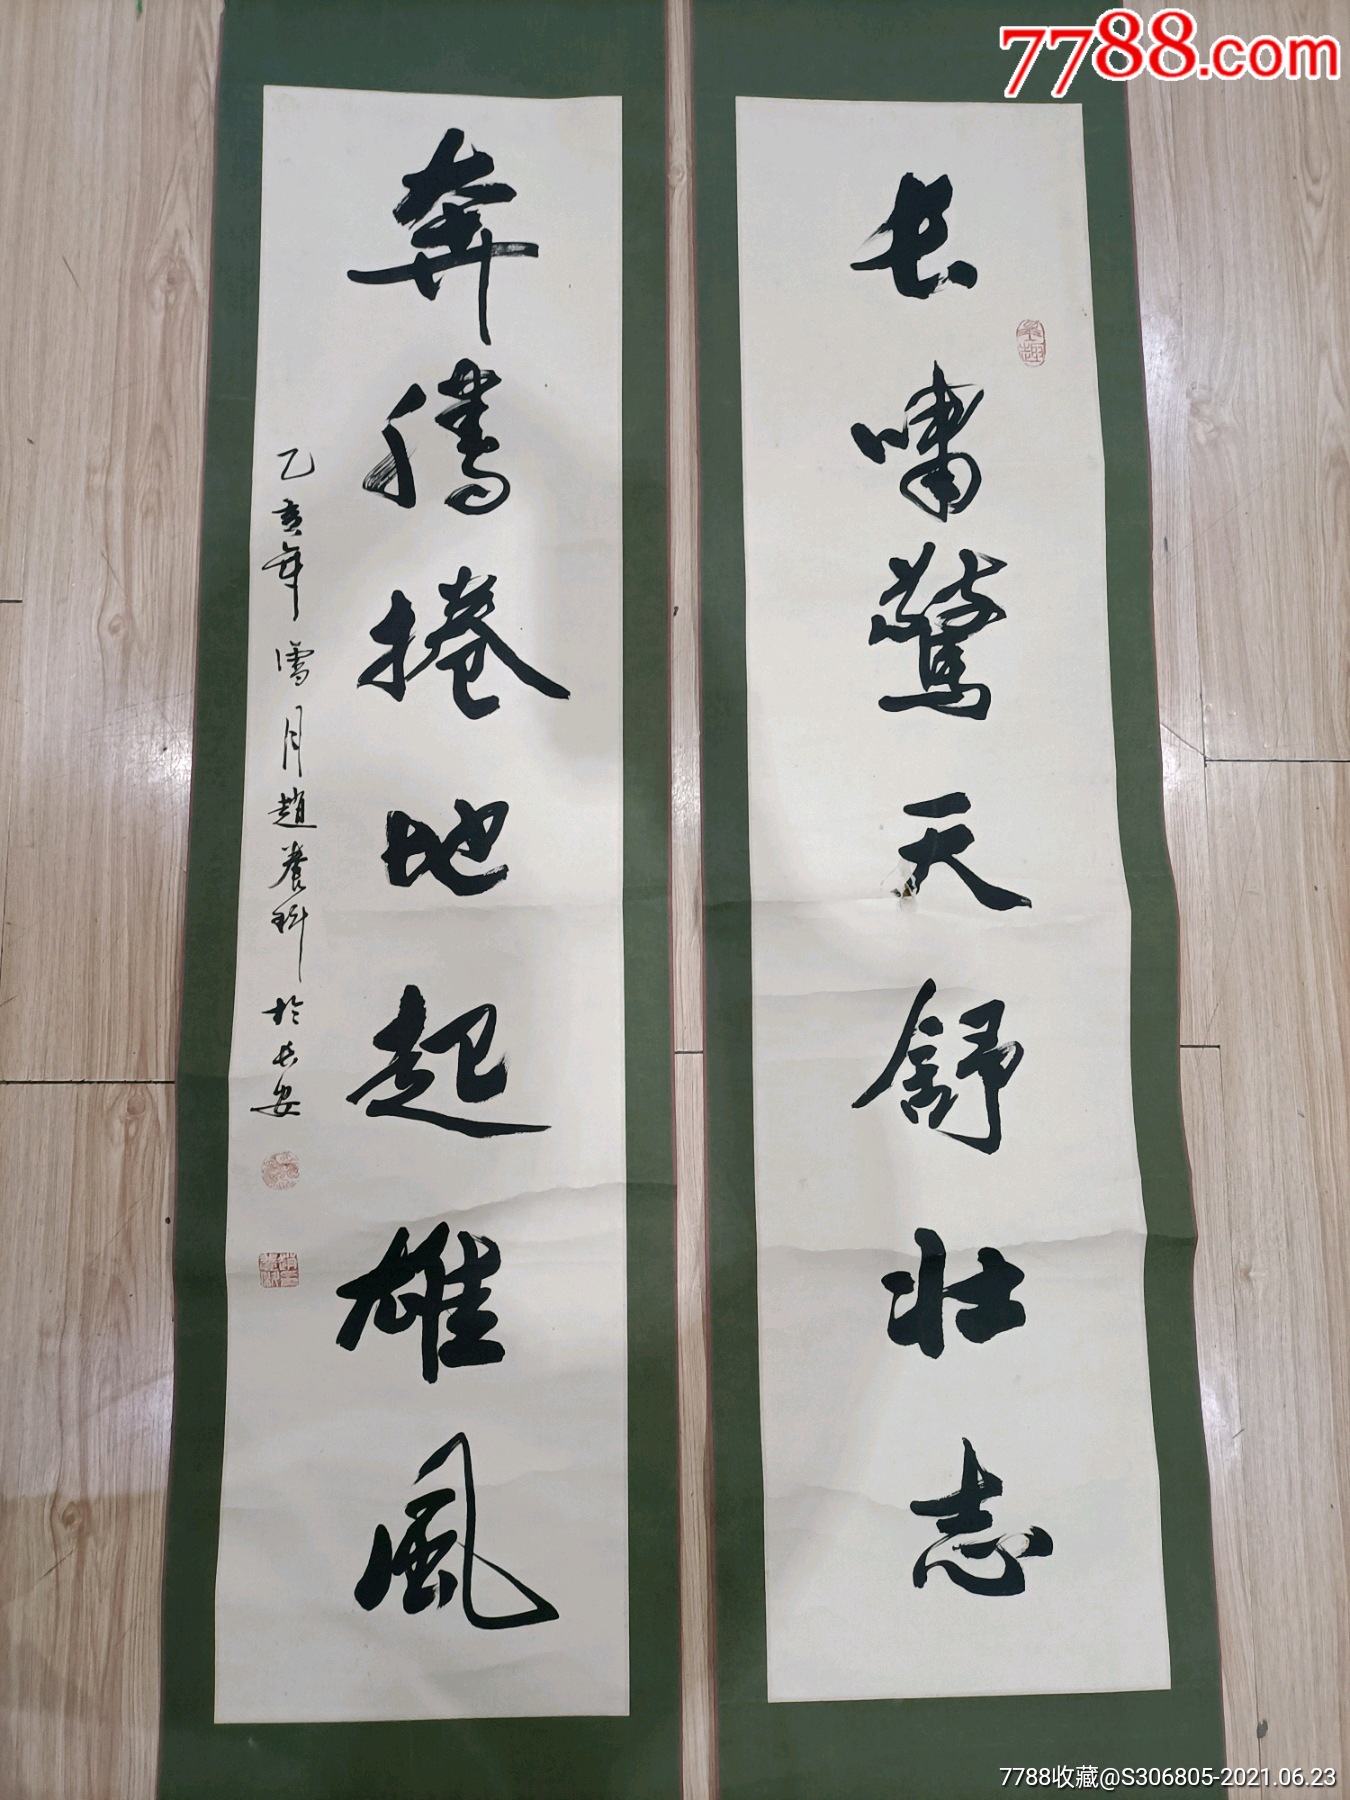 7788.com
长啸驚天舒壮志
奔騰捲地起雄風
乙亥年雪月趙養科於长安
7788收藏@S306805-2021.06.23